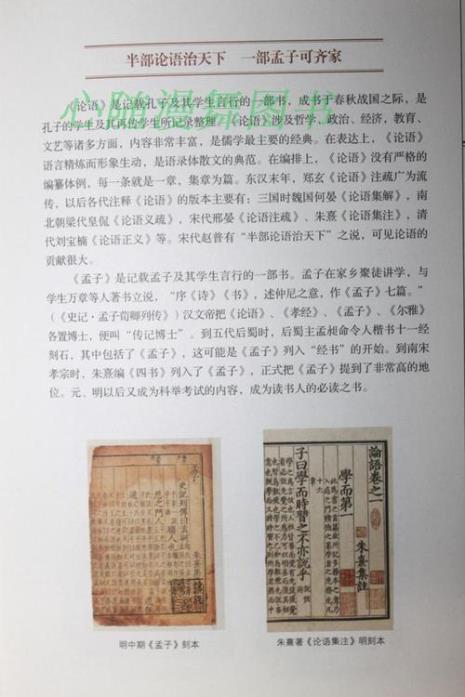 半部论语治天下　一部孟子可齐家
心随漫舞图书
《论语》是记载孔子及其学生言行的一部书，成书于春秋战国之际，是
孔子的学生及其再传学生所记录整理。《论语》涉及哲学、政治、经济、教育、
文艺等诸多方面，内容非常丰富，是儒学最主要的经典。在表达上，《论语》
语言精炼而形象生动，是语录体散文的典范。在编排上，《论语》没有严格的
编纂体例，每一条就是一章，集章为篇。东汉末年，郑玄《论语》注疏广为流
传，以后各代注释《论语》的版本主要有：三国时魏国何晏《论语集解》，南
北朝梁代皇侃《论语义疏》，宋代邢晏《论语注疏》、朱熹《论语集注》，清
代刘宝楠《论语正义》等。宋代赵普有“半部论语治天下”之说，可见论语的
贡献很大。
《孟子》是记载孟子及其学生言行的一部书。孟子在家乡聚徒讲学，与
学生万章等人著书立说，“序《诗》《书》，述仲尼之意，作《孟子》七篇。”
（《史记·孟子荀卿列传》）汉文帝把《论语》、《孝经》、《孟子》、《尔雅》
各置博士，便叫“传记博士”。到五代后蜀时，后蜀主孟昶命令人楷书十一经
刻石，其中包括了《孟子》，这可能是《孟子》列入“经书”的开始。到南宋
孝宗时，朱熹编《四书》列入了《孟子》，正式把《孟子》提到了非常高的地
位。元、明以后又成为科举考试的内容，成为读书人的必读之书。
論語卷之一
朱熹集註
學而第一
子曰學而時習之不亦說乎
明中期《孟子》刻本
朱熹著《论语集注》明刻本